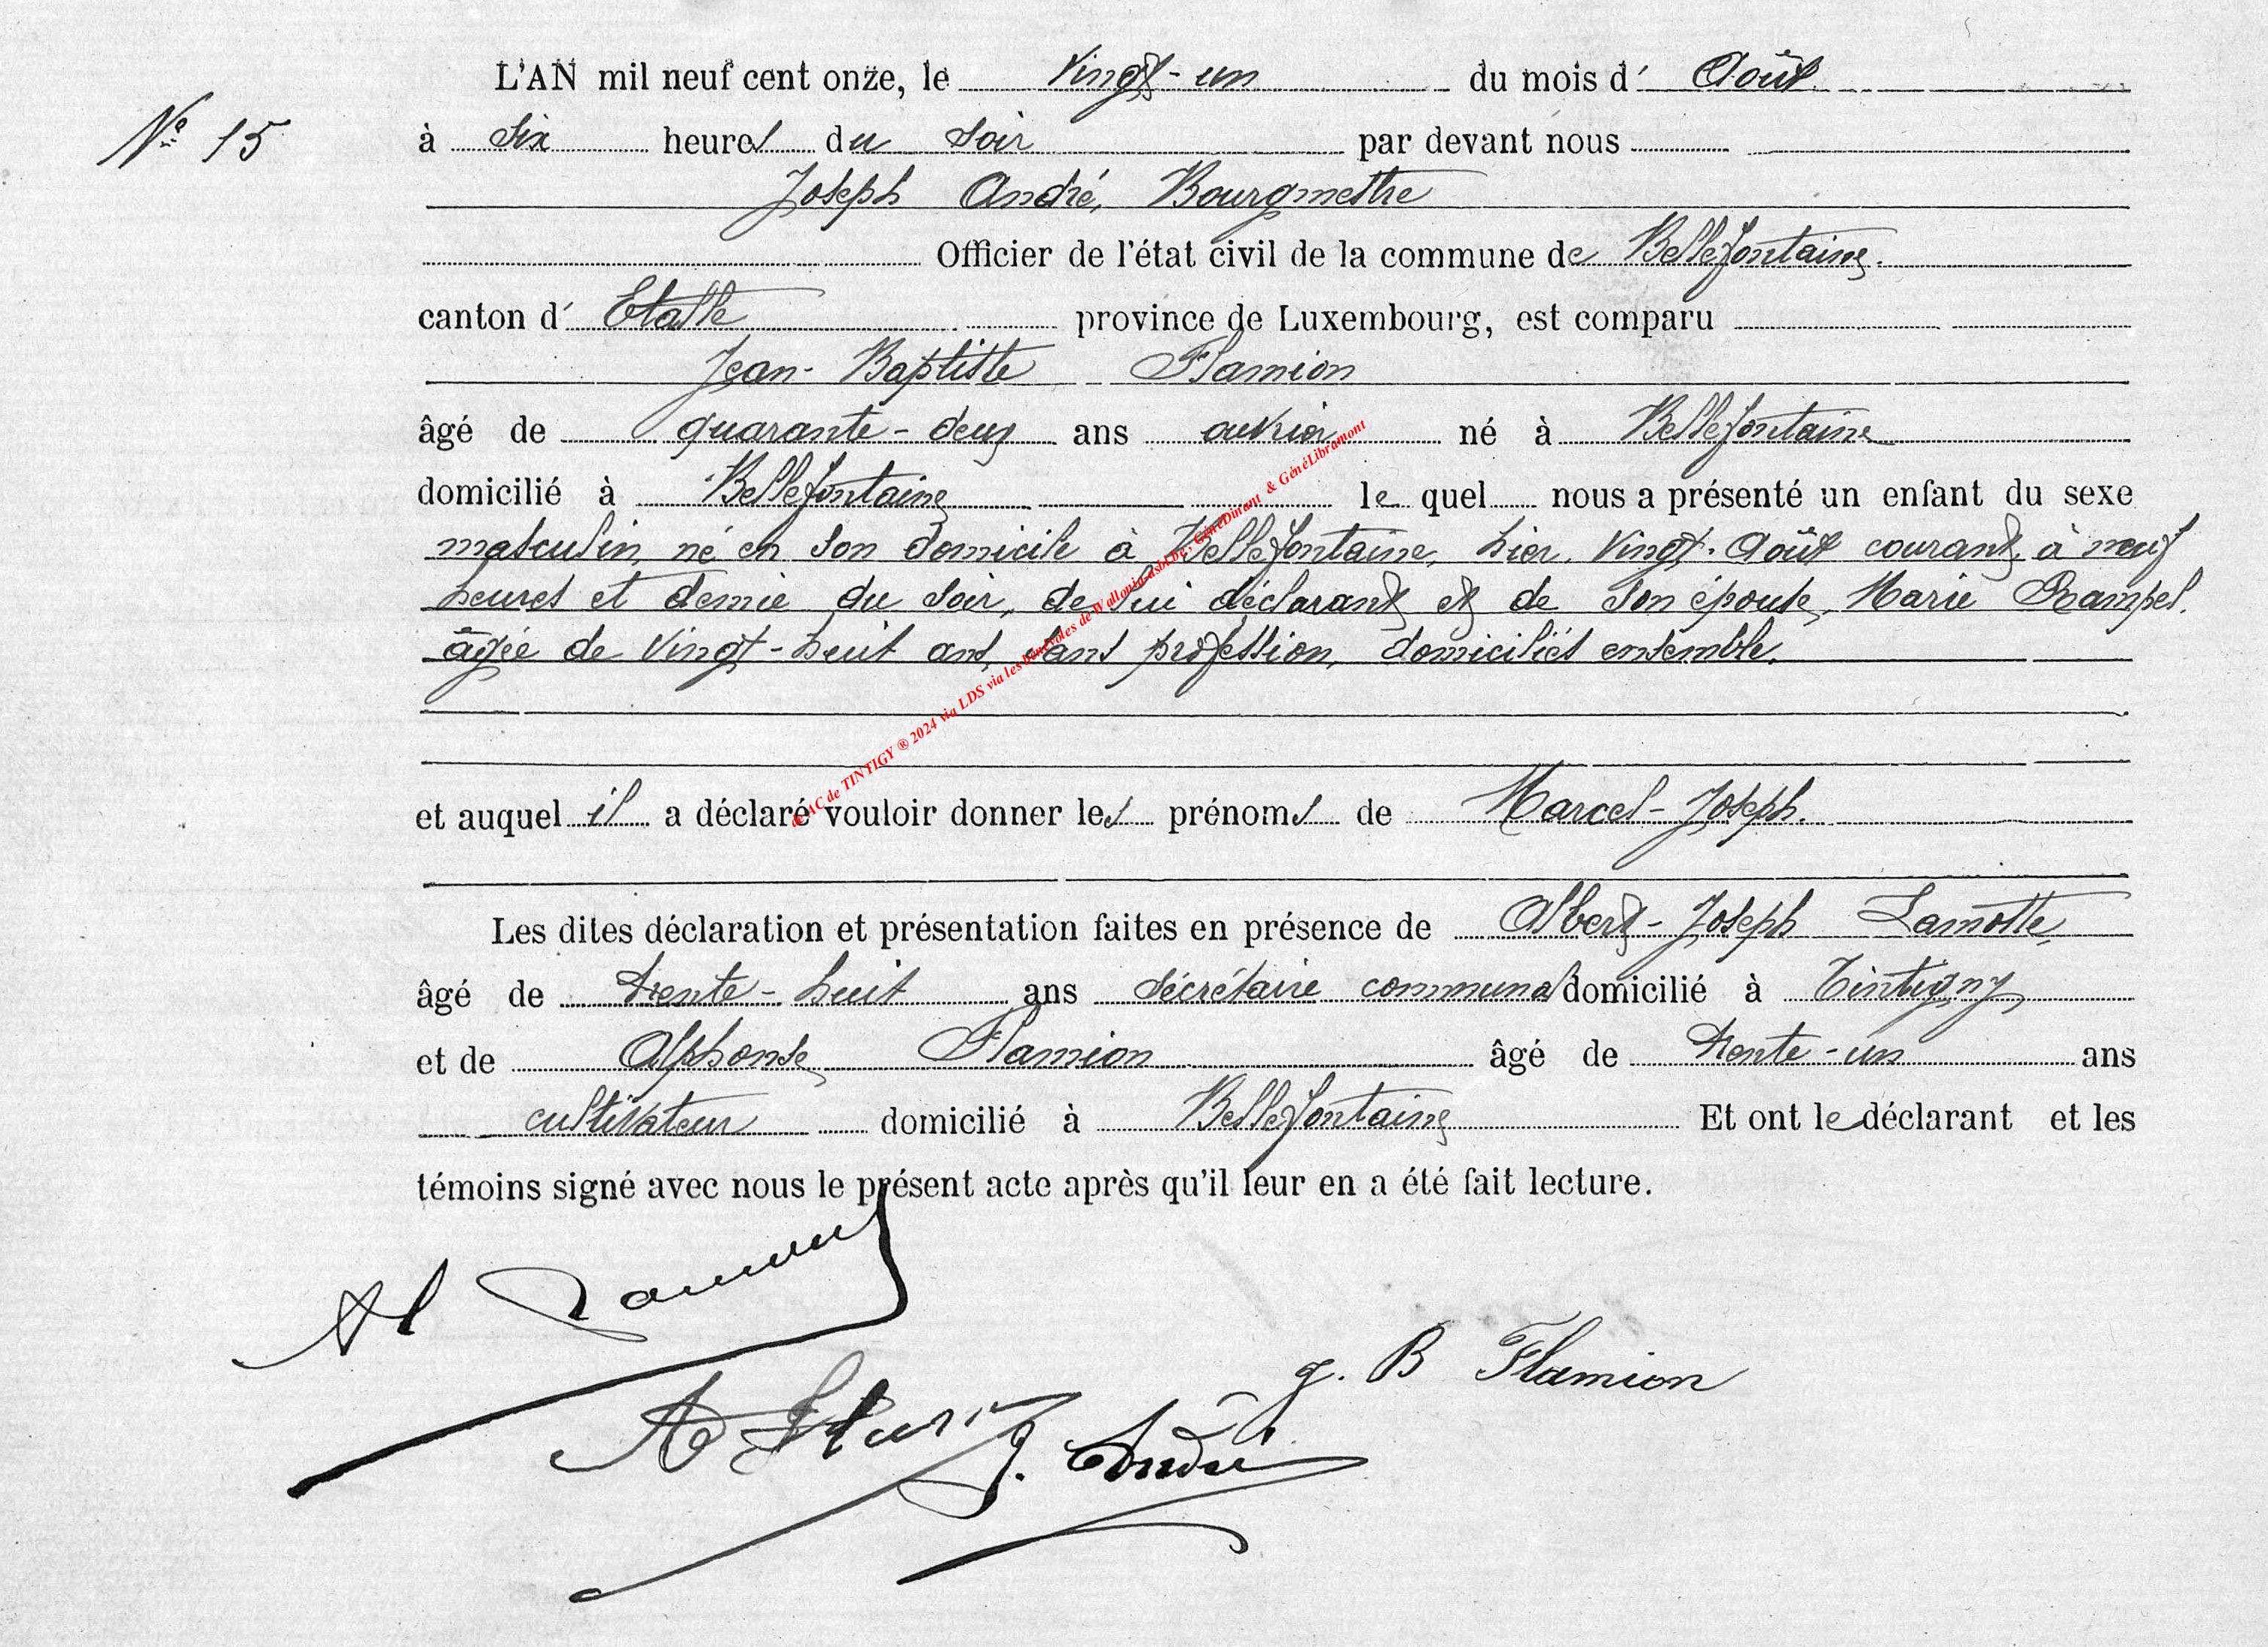 L'AN mil neuf cent onze, le Vingt-un du mois d' Août
Nº 15
à six heures du soir par devant nous
Joseph André, Bourgmestre
Officier de l'état civil de la commune de Bellefontaine.
canton d' Etalle province de Luxembourg, est comparu
Jean-Baptiste Flamion
âgé de quarante-deux ans ouvrier né à Bellefontaine
domicilié à Bellefontaine le quel nous a présenté un enfant du sexe
masculin, né en son domicile à Bellefontaine, hier, vingt-Août courant, à neuf
heures et demie du soir, de lui déclarant et de son épouse, Marie Rampel.
âgée de vingt-huit ans, sans profession, domiciliés ensemble.
et auquel il a déclaré vouloir donner les prénoms de Marcel-Joseph.
Les dites déclaration et présentation faites en présence de Albert-Joseph Lamotte,
âgé de trente-huit ans secrétaire communal domicilié à Tintigny
et de Alphonse Flamion âgé de trente-un ans
cultivateur domicilié à Bellefontaine Et ont le déclarant et les
témoins signé avec nous le présent acte après qu'il leur en a été fait lecture.
g. B Flamion
J. André
de AC de TINTIGY ® 2024 via LDS via les bénévoles de Wallonia-asbl.be, GénéDinant & GénéLibramont